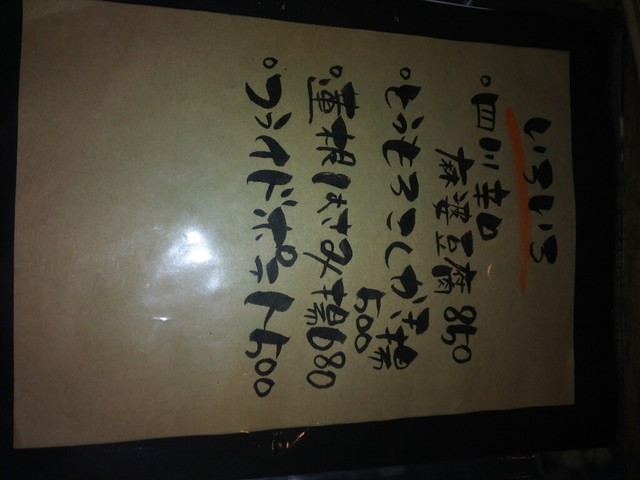 いろいろ
・四川辛口
麻婆豆腐 850
・とうもろこしかき揚
500
・蓮根はさみ揚 680
・フライドポテト 500